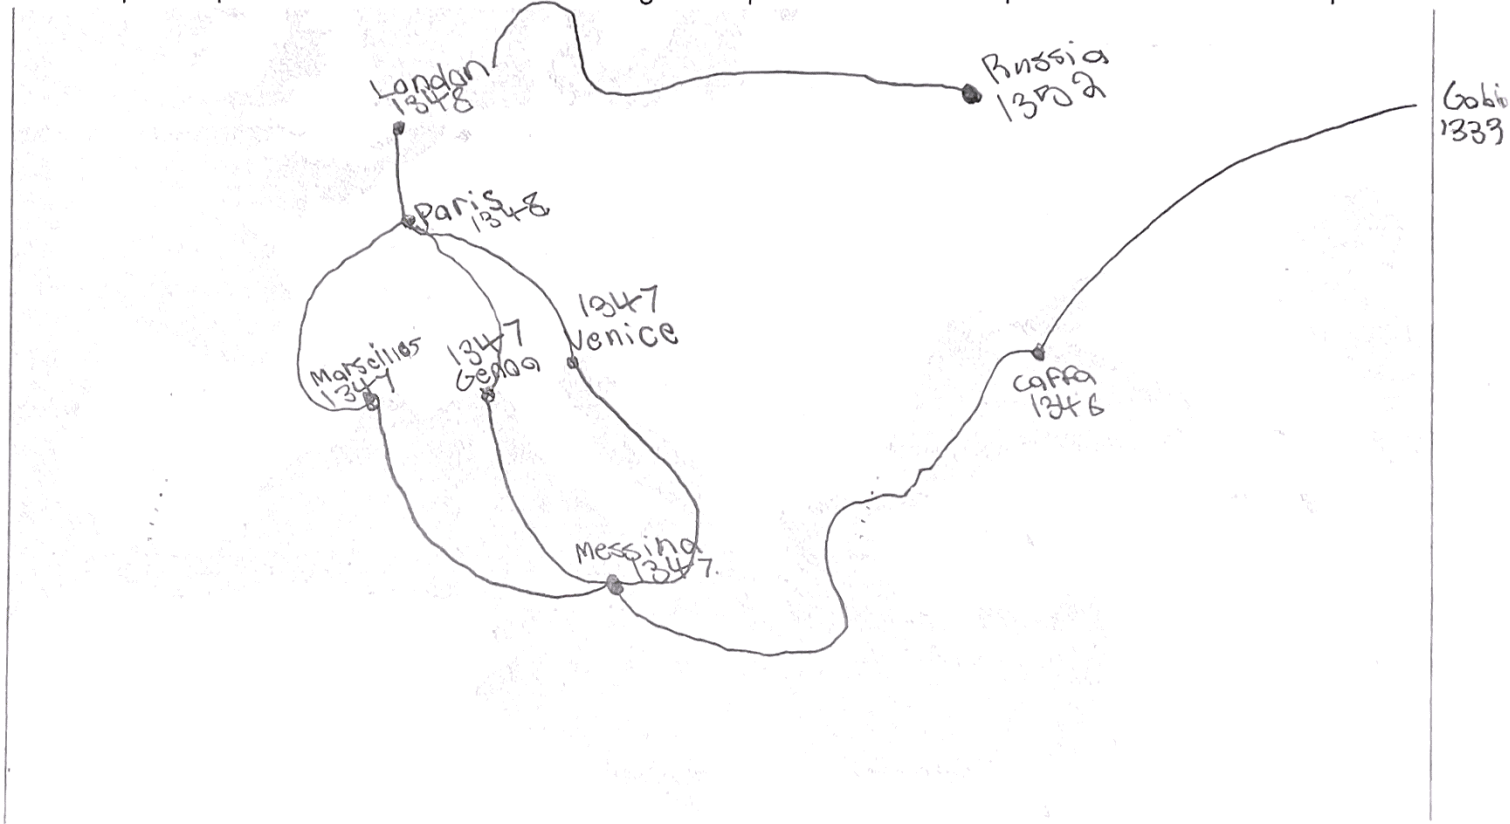 London
1348
Russia
1352
Gobi
1333
Paris
1348
1347
Venice
1347
Genoa
Marseilles
1347
Caffa
1346
Messina
1347.